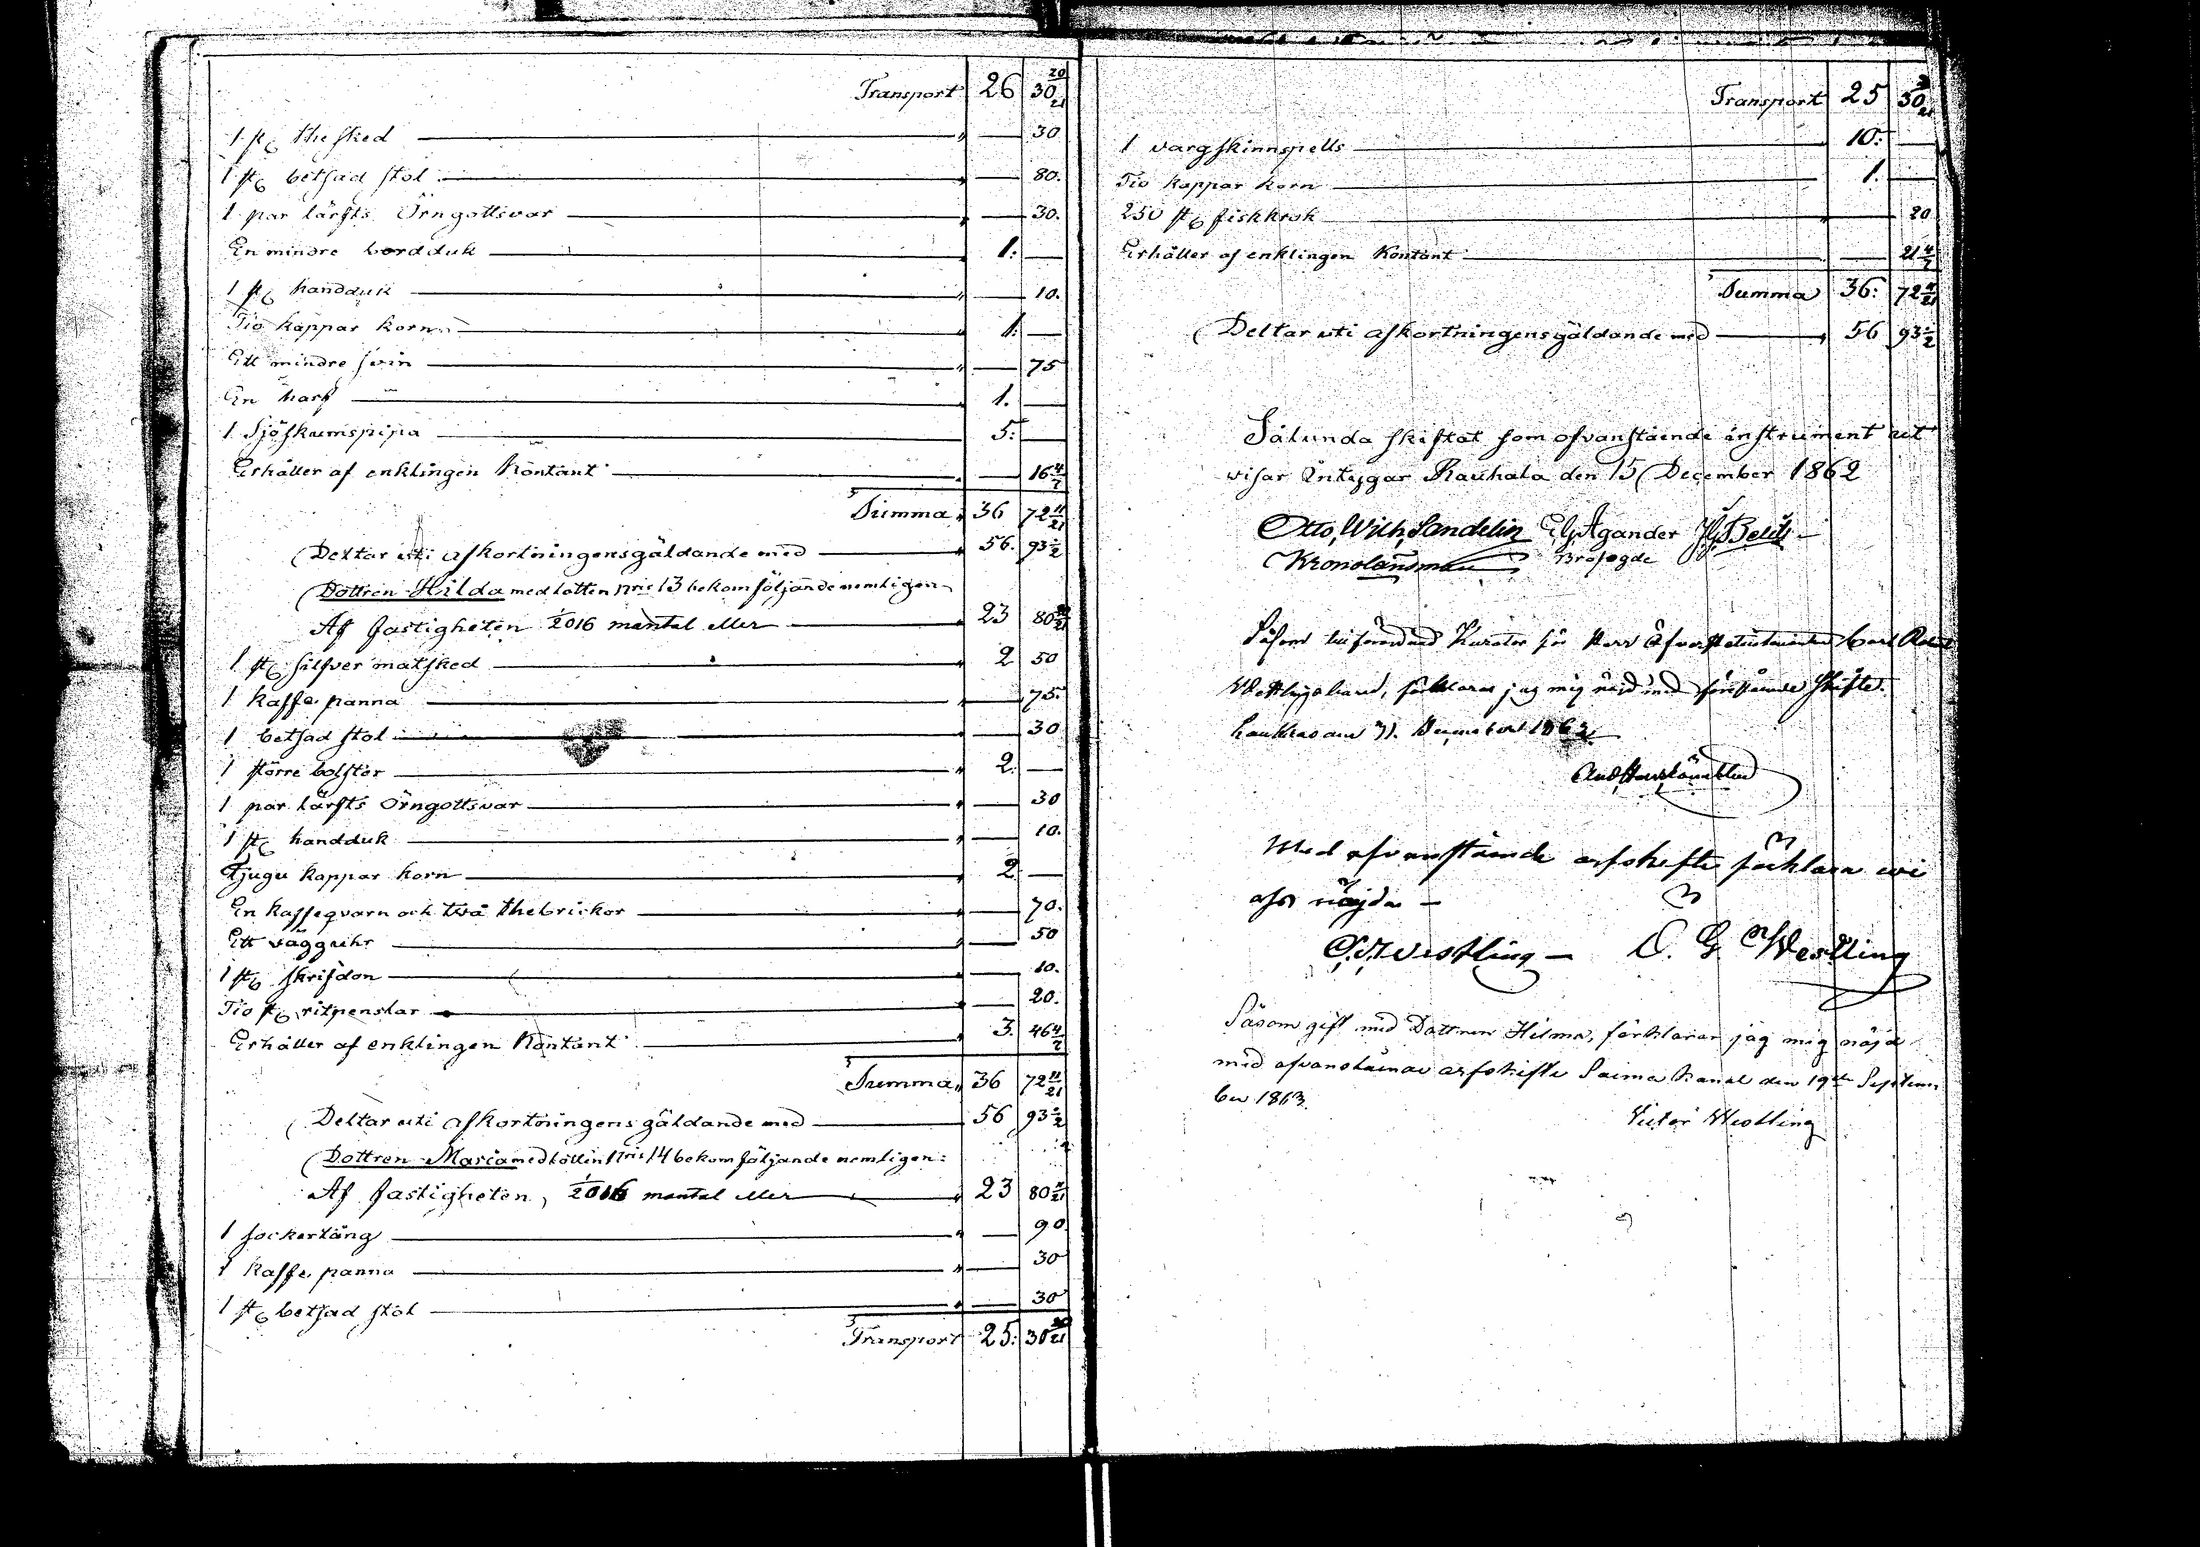 Transport 26 30 20/21
1 st. thesked — 30
1 st. betsad stol — 80.
1 par lärfts Örngottsvar — 30.
En mindre bordduk 1. —
1 st. handduk — 10.
Tio kappar korn 1. —
Ett mindre svin — 75
En harf 1. —
1 Sjöskumspipa 5. —
Erhåller af enklingen Kontant — 16 4/7
Summa 36 72 11/21
Deltar uti afkortningens gäldande med 56. 93 1/2
Dottren Hilda med lotten No 13 bekom följande nemligen
Af fastigheten 1/2016 mantal eller 23 80 20/21
1 st. silfver matsked 2 50
1 kaffe panna — 75.
1 betsad stol — 30
1 större bolster 2. —
1 par lärfts Örngottsvar — 30
1 st. handduk — 10.
Tjugu kappar korn 2 —
En kaffeqvarn och två thebrickor — 70.
Ett vägguhr — 50
1 st. skrifdon — 10.
Tio st. ritpenslar — 20.
Erhåller af enklingen Kontant 3. 46 4/7
Summa 36 72 11/21
Deltar uti afkortningens gäldande med 56 93 1/2
Dottren Maria med lotten No 14 bekom följande nemligen:
Af fastigheten, 1/2016 mantal eller 23 80 20/21
1 sockertång — 90
1 kaffe panna — 30
1 st. betsad stol — 30
Transport 25. 30 20/21
Transport 25 30 20/21
1 vargskinnspells 10. —
Tio kappar korn 1. —
250 st. fiskkrok — 20
Erhåller af enklingen Kontant — 21 4/7
Summa 36. 72 11/21
Deltar uti afkortningens gäldande med 56 93 1/2
Sålunda skiftat som ofvanstående instrument ut
visar Intygar Rauhala den 15 December 1862
Otto, Wilh, Sandelin E. G. Agander
Kronolänsman Brofogde
Såsom Kurator för Herr Öfverstelöjtnanten Carl
förklarar jag mig nöjd med förestående skifte.
den 31. December 1862
Med ofvanstående arfskifte förklara wi
oss nöjda —
Westling — O. G. Westling
Såsom gift med Dottren Hilma, förklarar jag mig nöjd
med ofvanstående arfskifte Saima Kanal den 19de Septem
ber 1863.
Victor Westling